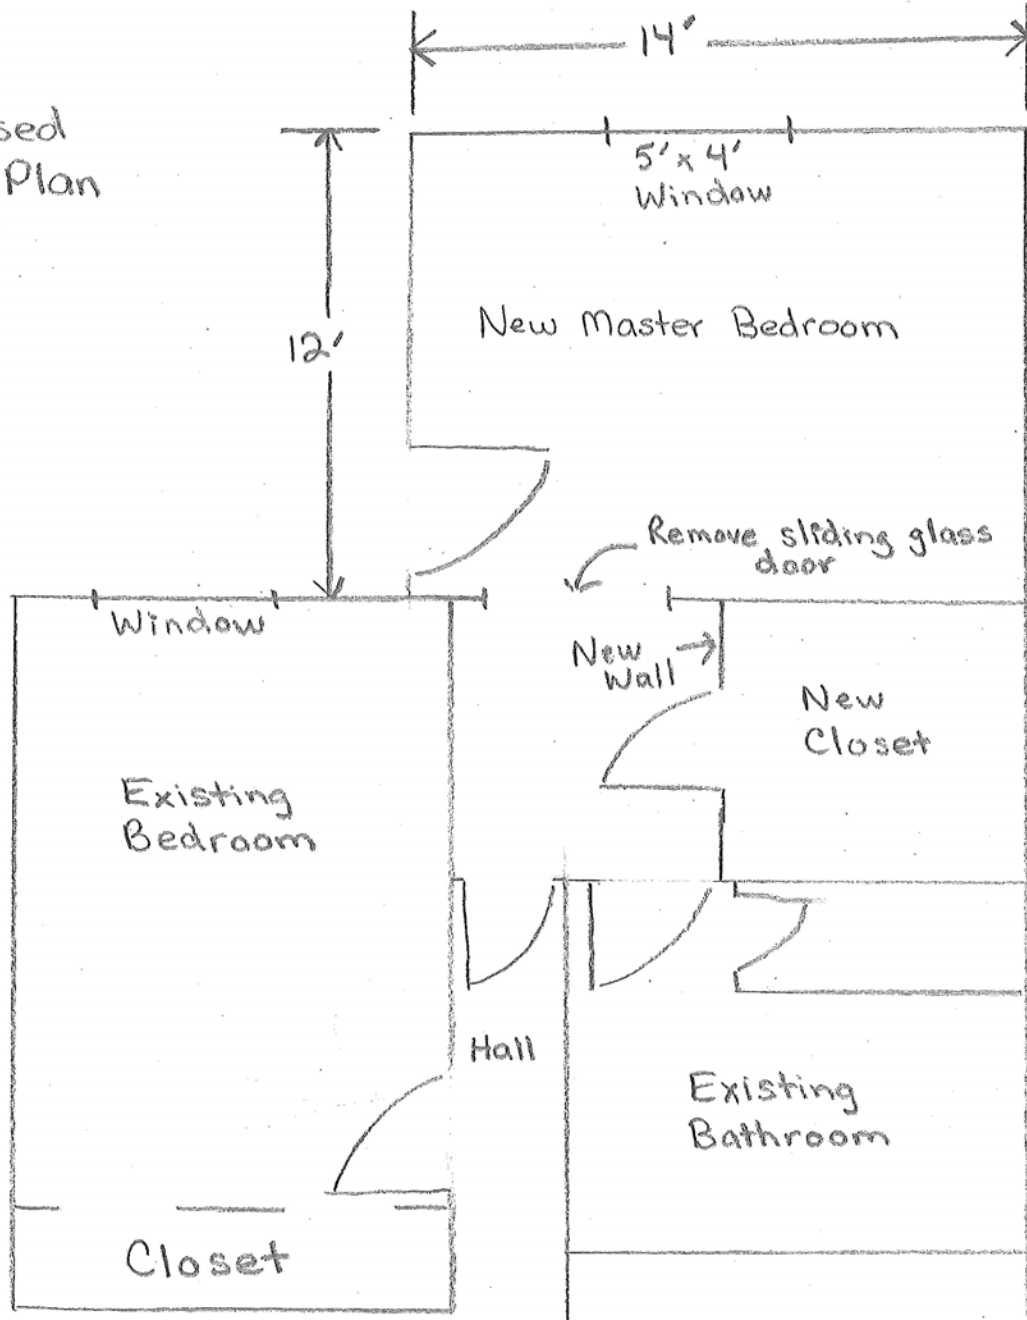 14'
sed
Plan
5' x 4'
Window
12'
New Master Bedroom
Remove sliding glass
door
Window
New
Wall
New
Closet
Existing
Bedroom
Hall
Existing
Bathroom
Closet